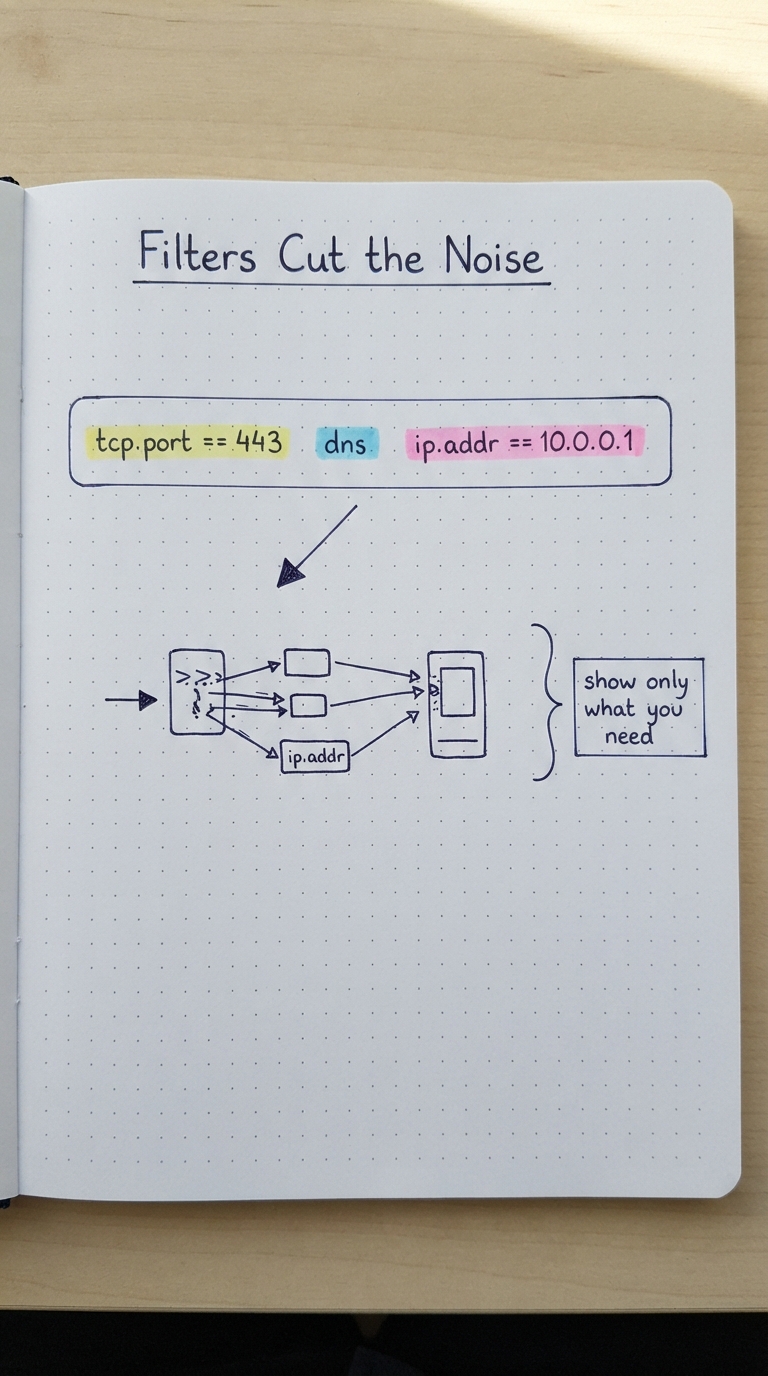 Filters Cut the Noise
tcp.port == 443 dns ip.addr == 10.0.0.1
ip.addr
show only
what you
need